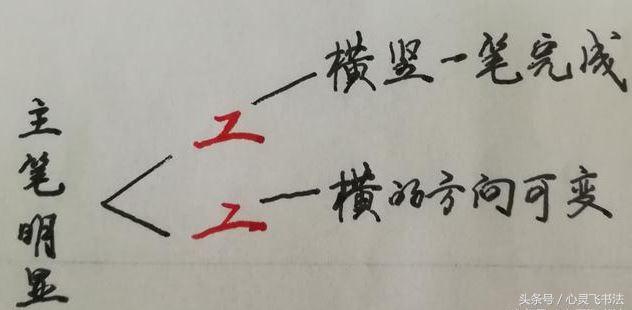 主笔明显
工 一 横竖一笔完成
工 一 横的方向可变
头条号 / 心灵飞书法